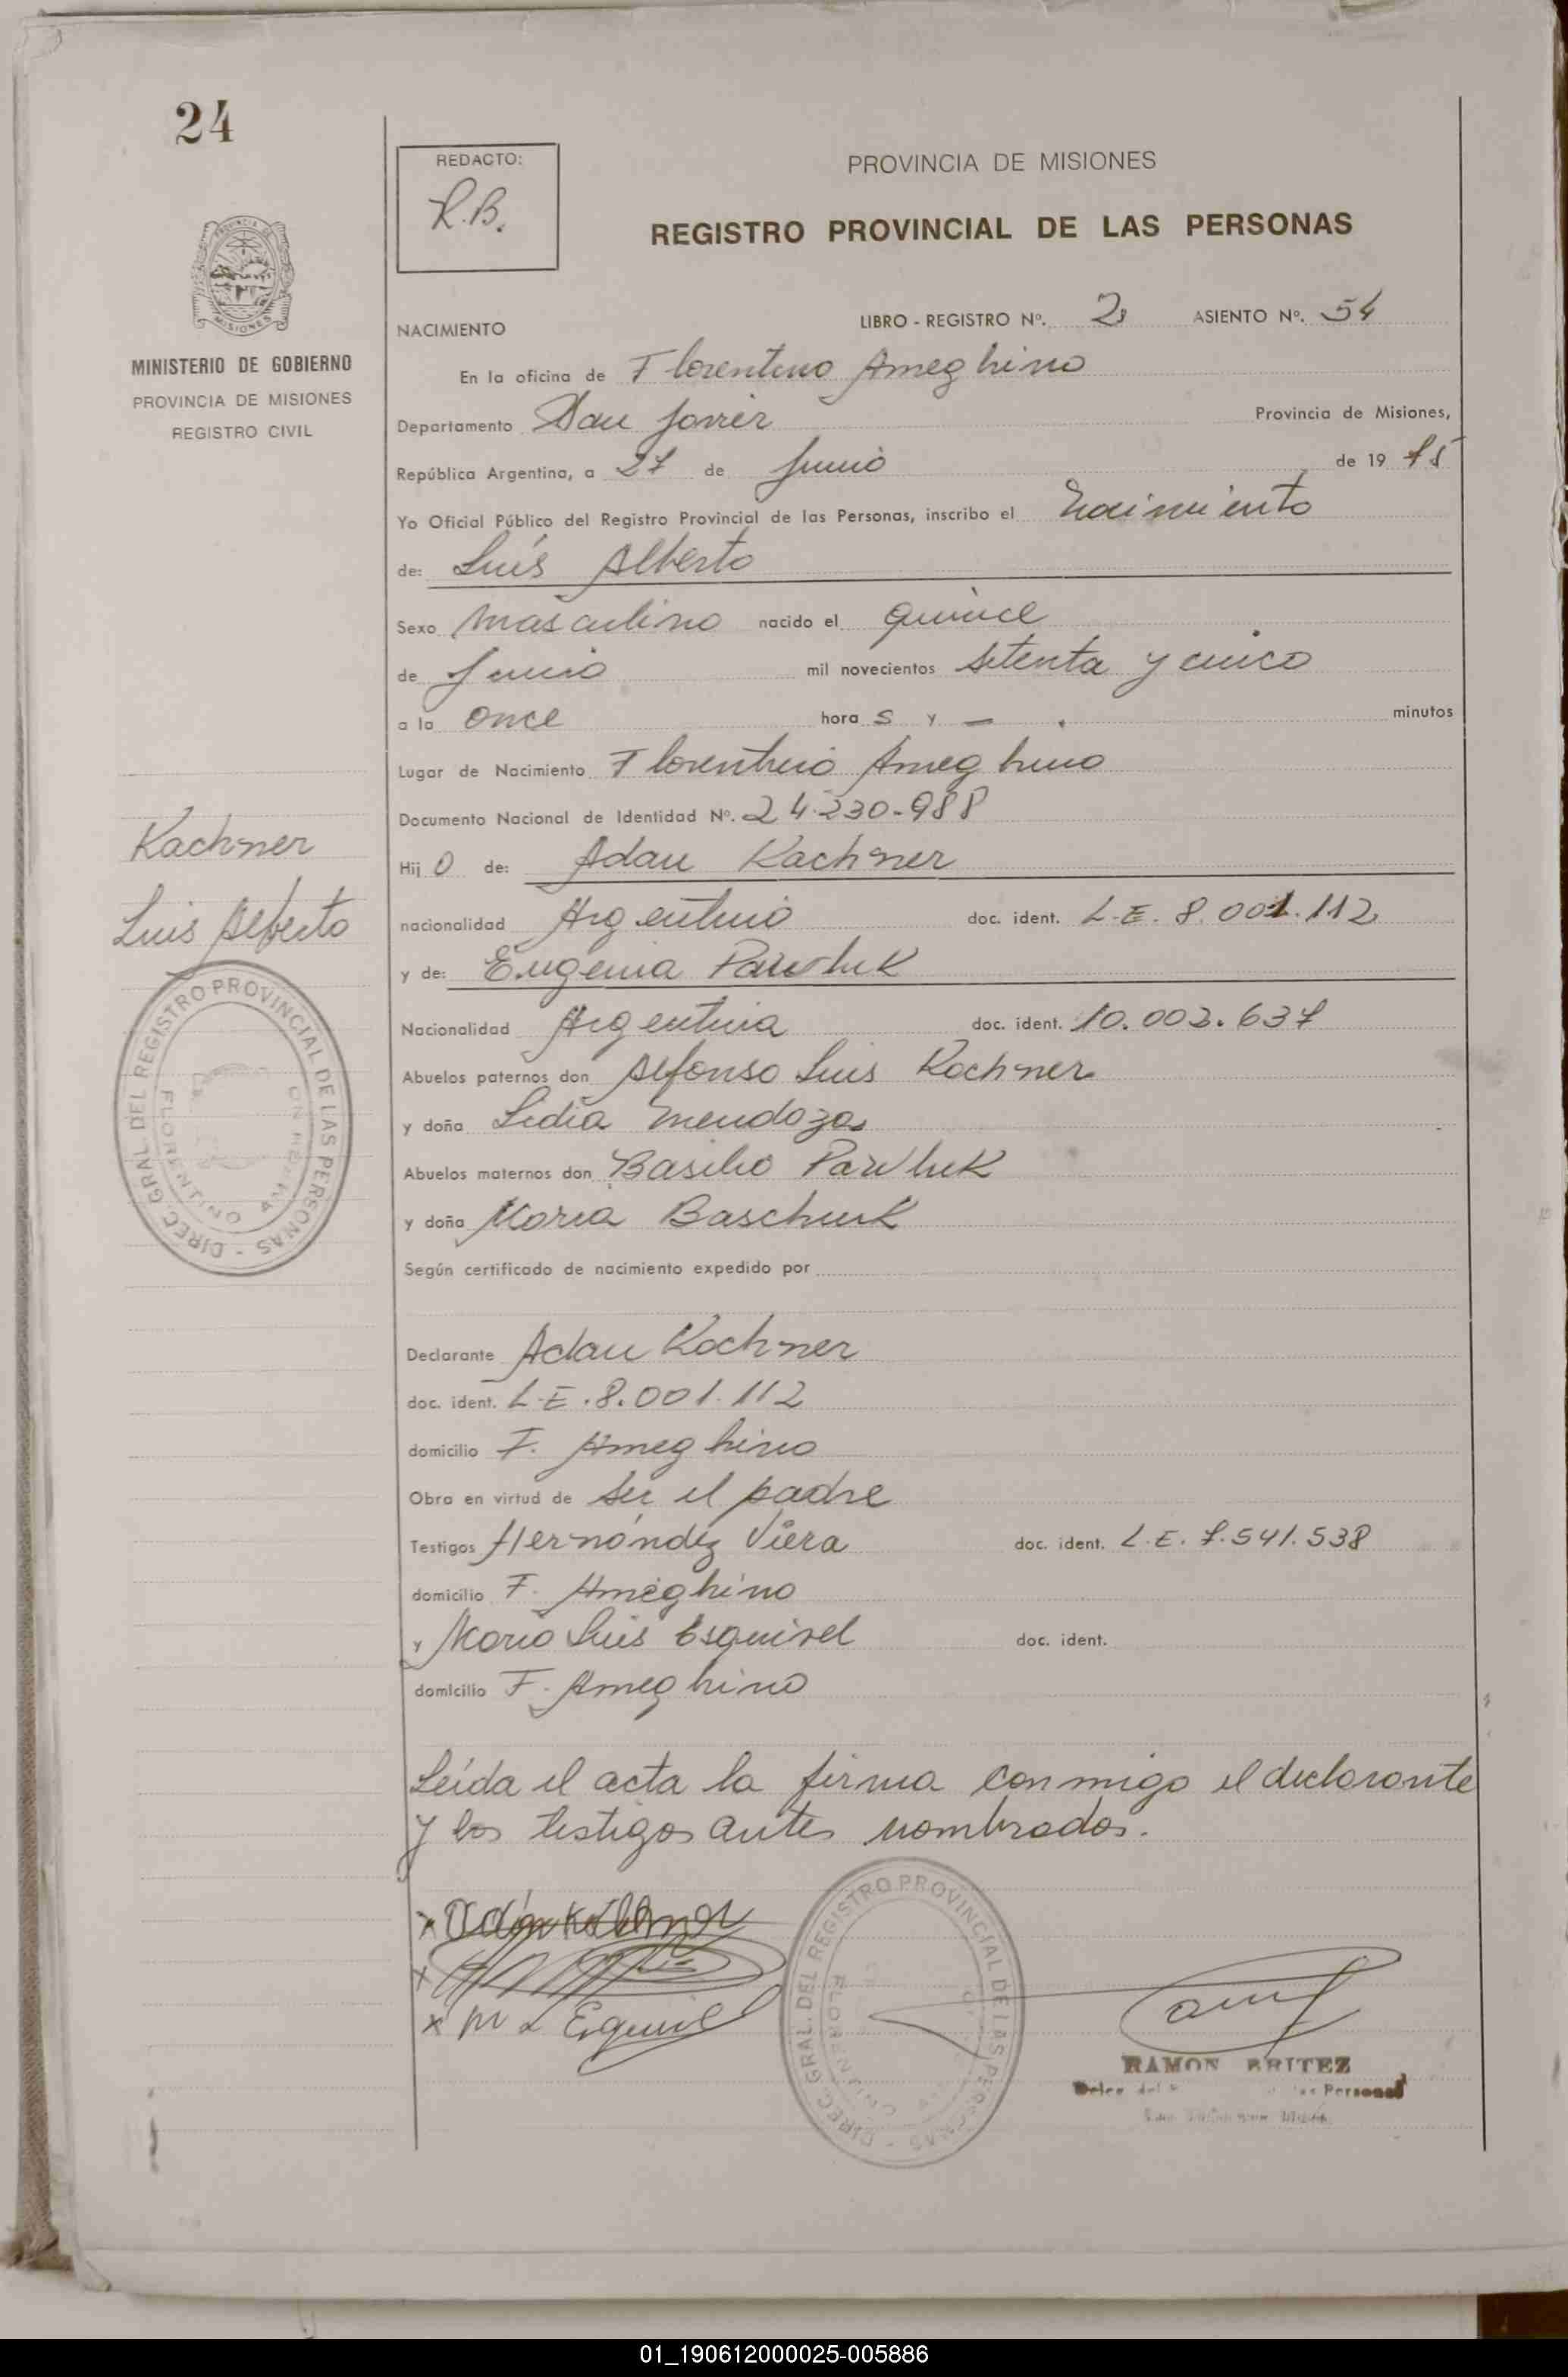 24
REDACTO:
R.B.
PROVINCIA DE MISIONES
REGISTRO PROVINCIAL DE LAS PERSONAS
MINISTERIO DE GOBIERNO
PROVINCIA DE MISIONES
REGISTRO CIVIL
NACIMIENTO LIBRO - REGISTRO Nº. 2 ASIENTO Nº. 54
En la oficina de Florentino Ameghino
Departamento San Javier Provincia de Misiones,
República Argentina, a 27 de Junio de 19 75
Yo Oficial Público del Registro Provincial de las Personas, inscribo el Nacimiento
de: Luis Alberto
Sexo masculino nacido el quince
de Junio mil novecientos setenta y cinco
a la once hora s y — . minutos
Lugar de Nacimiento Florentino Ameghino
Documento Nacional de Identidad Nº. 24.230-988
Kachner
Hij o de: Adan Kachner
Luis Alberto
nacionalidad Argentino doc. ident. L.E. 8.001.112
y de: Eugenia Pawluk
Nacionalidad Argentina doc. ident. 10.002.637
Abuelos paternos don Alfonso Luis Kachner
y doña Lidia Mendoza
Abuelos maternos don Basilio Pawluk
y doña Maria Baschuk
DIREC. GRAL. DEL REGISTRO PROVINCIAL DE LAS PERSONAS -
FLORENTINO AMEGHINO
Según certificado de nacimiento expedido por
Declarante Adan Kachner
doc. ident. L.E. 8.001.112
domicilio F. Ameghino
Obra en virtud de ser el padre
Testigos Hernández Viera doc. ident. L.E. 7.541.538
domicilio F. Ameghino
y Mario Luis Esquivel doc. ident.
domicilio F. Ameghino
Leída el acta la firma conmigo el declarante
y los testigos antes nombrados.
DIREC. GRAL. DEL REGISTRO PROVINCIAL DE LAS PERSONAS -
x M L Esquivel
RAMON BRITEZ
01_190612000025-005886